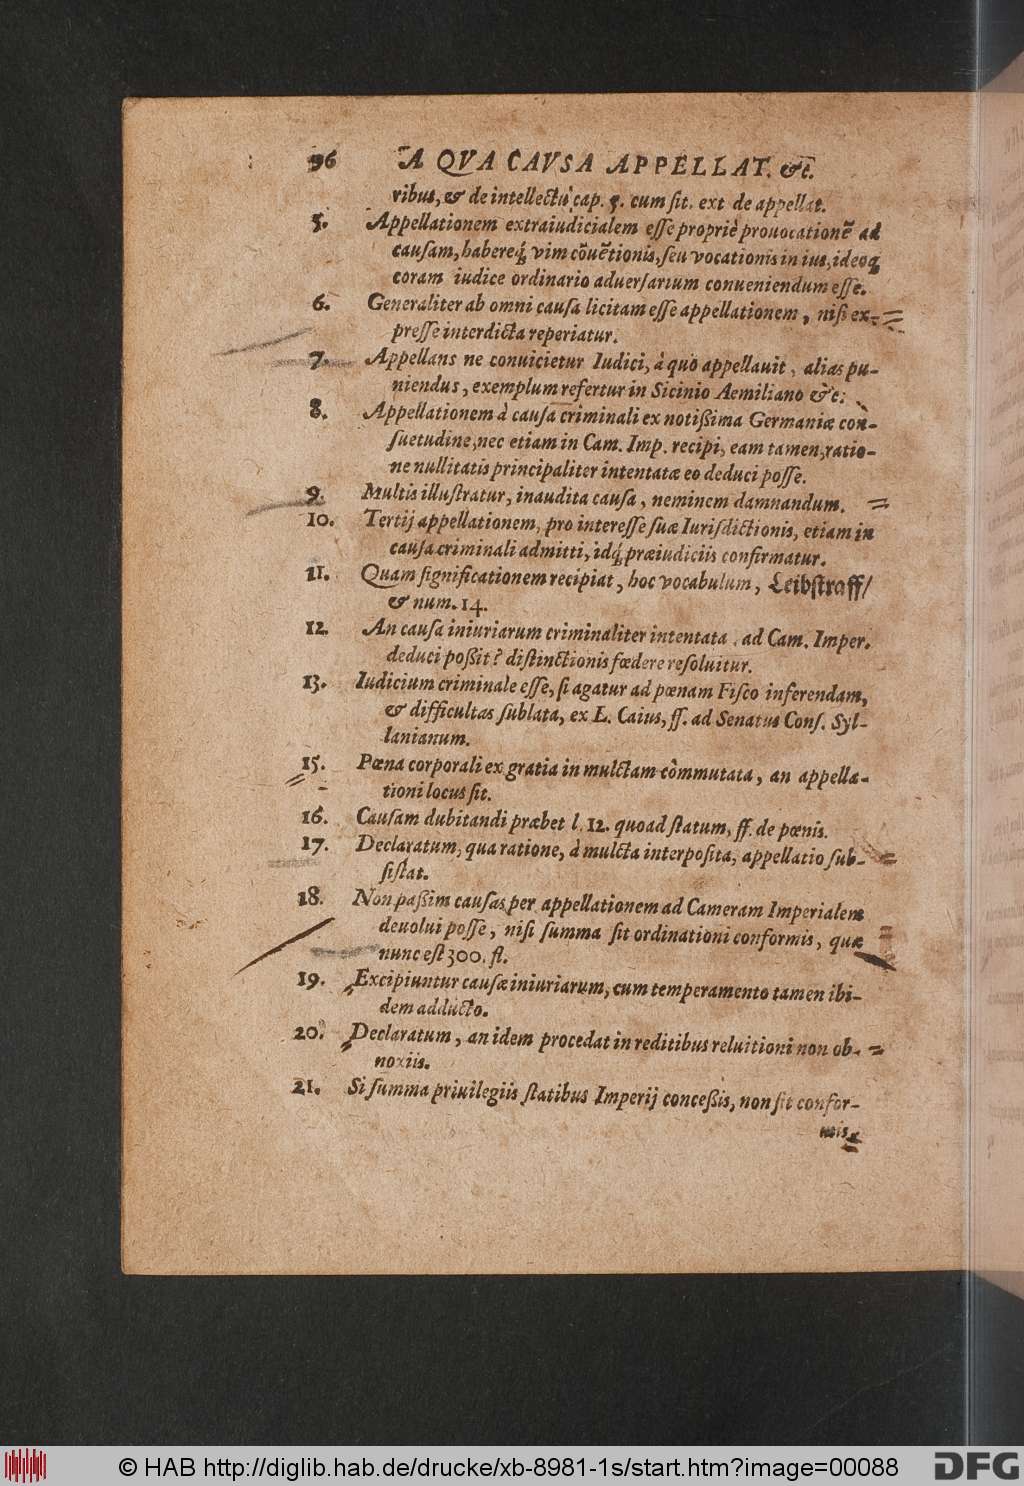 96 A QVA CAVSA APPELLAT. &c.
ribus, & de intellectu cap. 5. cum sit. ext de appellat.
5. Appellationem extraiudicialem esse propriè prouocationē ad
causam, habereq́ vim cōuētionis, seu vocationis in ius, ideoq́
coram iudice ordinario aduersarium conueniendum esse.
6. Generaliter ab omni causa licitam esse appellationem, nisi ex-
presse interdicta reperiatur.
7. Appellans ne conuicietur Iudici, à quo appellauit, alias pu-
niendus, exemplum refertur in Sicinio Aemiliano &c.
8. Appellationem à causa criminali ex notißima Germaniæ con-
suetudine, nec etiam in Cam. Imp. recipi, eam tamen, ratio-
ne nullitatis principaliter intentatæ eo deduci posse.
9. Multis illustratur, inaudita causa, neminem damnandum.
10. Tertij appellationem, pro interesse suæ Iurisdictionis, etiam in
causa criminali admitti, idq́, præiudiciis confirmatur.
11. Quam significationem recipiat, hoc vocabulum, Leibstraff/
& num. 14.
12. An causa iniuriarum criminaliter intentata, ad Cam. Imper.
deduci poßit? distinctionis fœdere resoluitur.
13. Iudicium criminale esse, si agatur ad pœnam Fisco inferendam,
& difficultas sublata, ex L. Caius, ff. ad Senatus Cons. Syl-
lanianum.
15. Pœna corporali ex gratia in mulctam cōmutata, an appella-
tioni locus sit.
16. Causam dubitandi præbet l. 12. quoad statum, ff. de pœnis.
17. Declaratum, qua ratione, à mulcta interposita, appellatio sub-
sistat.
18. Non paßim causas per appellationem ad Cameram Imperialem
deuolui posse, nisi summa sit ordinationi conformis, quæ
nunc est 300. fl.
19. Excipiuntur causæ iniuriarum, cum temperamento tamen ibi-
dem adducto.
20. Declaratum, an idem procedat in reditibus reluitioni non ob-
noxiis.
21. Si summa priuilegiis statibus Imperij conceßis, non sit confor-
mis,
© HAB http://diglib.hab.de/drucke/xb-8981-1s/start.htm?image=00088
DFG